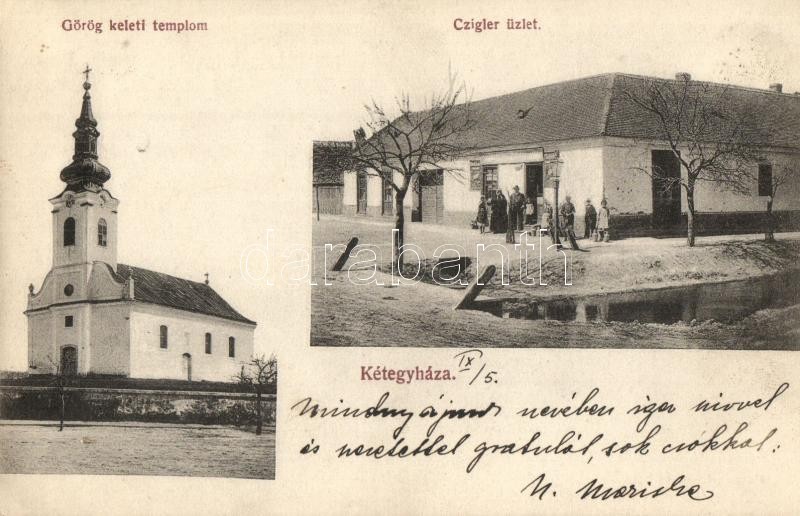 Görög keleti templom
Czigler üzlet.
darabanth
Kétegyháza. IX/5.
nevében igaz
és szeretettel gratulál, sok csókkal:
N. Mariska